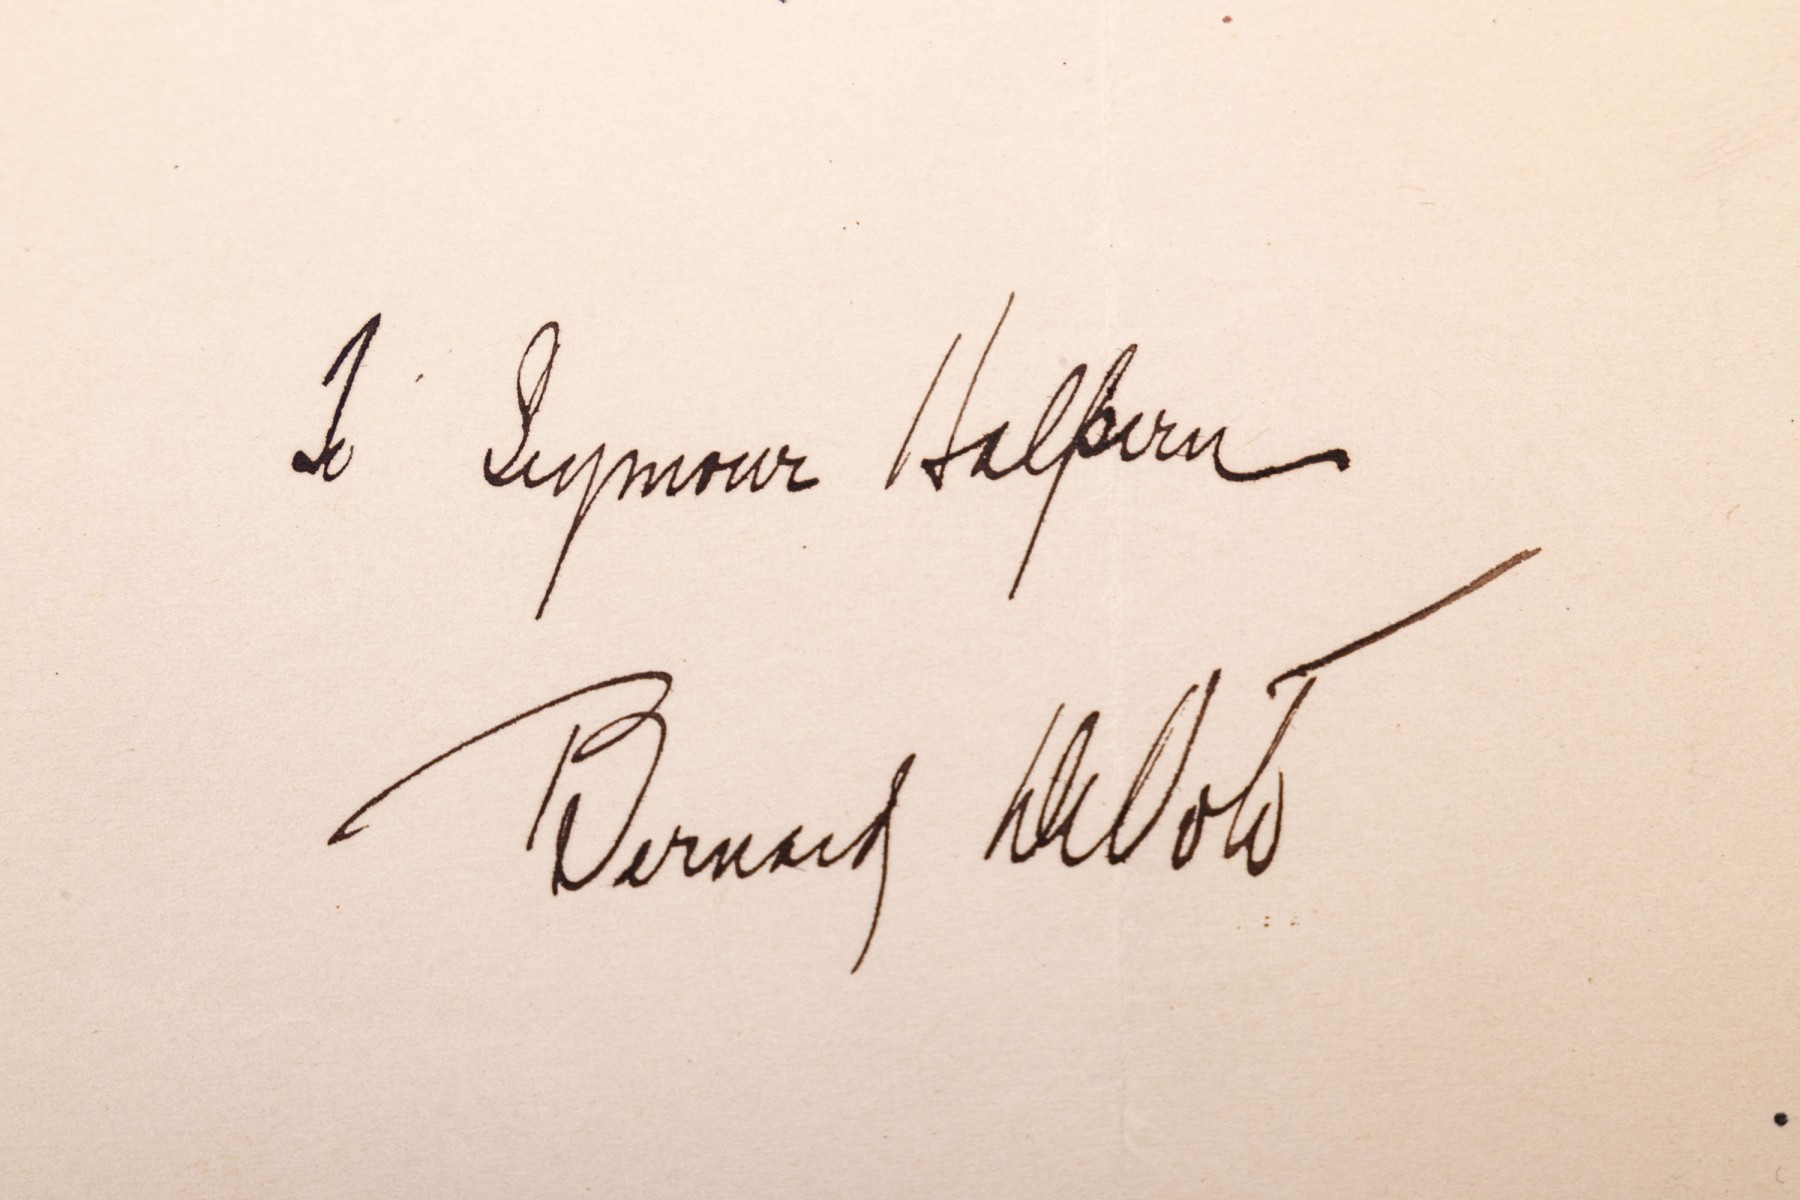 To Seymour Halpern
Bernard DeVoto